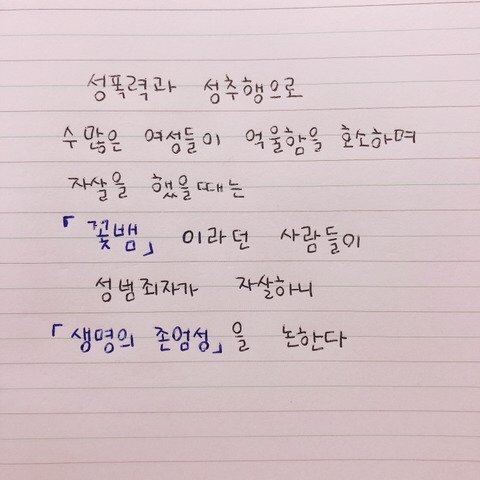 성폭력과 성추행으로
수 많은 여성들이 억울함을 호소하며
자살을 했을때는
「꽃뱀」 이라던 사람들이
성범죄자가 자살하니
「생명의 존엄성」을 논한다